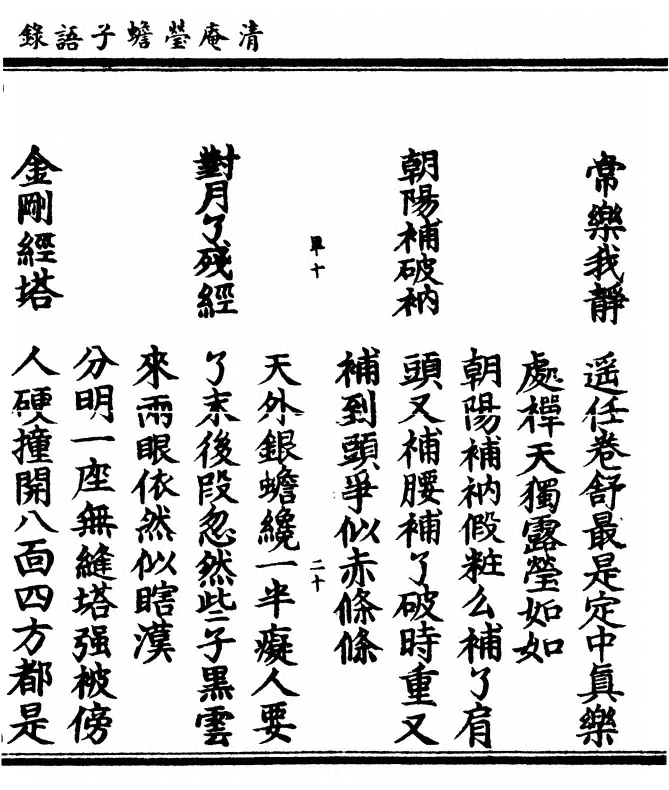 清庵瑩蟾子語錄
常樂我靜
遥任卷舒最是定中眞樂
處禪天獨露瑩如如
朝陽補破衲
朝陽補衲假粧么補了肩
頭又補腰補了破時重又
補到頭爭似赤條條
單十
二十
對月了殘經
天外銀蟾纔一半癡人要
了末後段忽然些子黑雲
來兩眼依然似瞎漢
金剛經塔
分明一座無縫塔强被傍
人硬撞開八面四方都是